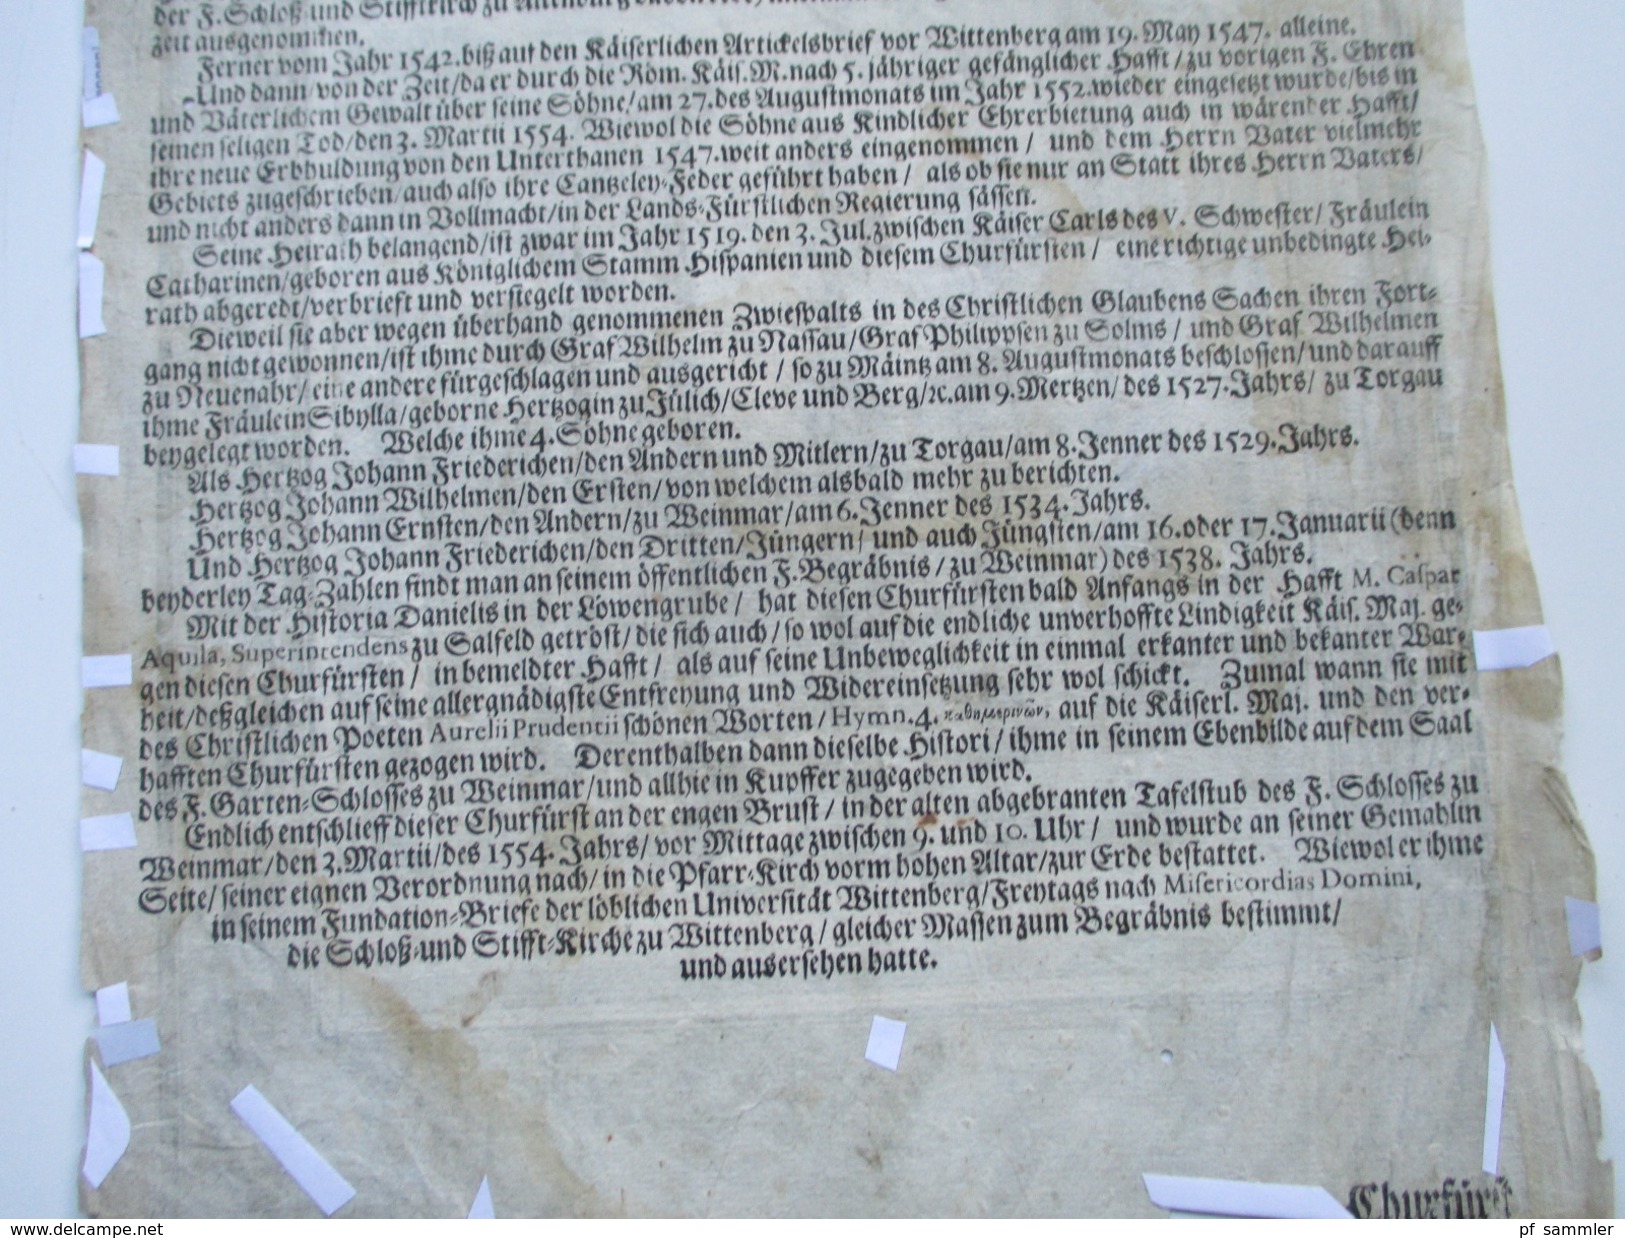 der F. Schloß und Stifftkirch zu
zeit ausgenommen.
Ferner vom Jahr 1542. biß auf den Käiserlichen Artickelsbrief vor Wittenberg am 19. May 1547. alleine.
Und dann/ von der Zeit/ da er durch die Röm. Käis. M. nach 5. jähriger gefänglicher Hafft/ zu vorigen F. Ehren
und Väterlichem Gewalt über seine Söhne/ am 27. des Augustmonats im Jahr 1552. wieder eingesetzt wurde/ bis in
seinen seligen Tod/ den 3. Martii 1554. Wiewol die Söhne aus Kindlicher Ehrerbietung auch in wärender Hafft/
ihre neue Erbhuldung von den Unterthanen 1547. weit anders eingenommen/ und dem Herrn Vater vielmehr
Gebiets zugeschrieben/ auch also ihre Cantzeley-Feder geführt haben/ als ob sie nur an Statt ihres Herrn Vaters/
und nicht anders dann in Vollmacht/ in der Lands-Fürstlichen Regierung sässen.
Seine Heirath belangend/ ist zwar im Jahr 1519. den 3. Jul. zwischen Käiser Carls des V. Schwester/ Fräulein
Catharinen/ geboren aus Königlichem Stamm Hispanien und diesem Churfürsten/ eine richtige unbedingte Hei-
rath abgeredt/ verbrieft und versiegelt worden.
Dieweil sie aber wegen überhand genommenen Zwiespalts in des Christlichen Glaubens Sachen ihren Fort-
gang nicht gewonnen/ ist ihme durch Graf Wilhelm zu Nassau/ Graf Philippsen zu Solms/ und Graf Wilhelmen
zu Neuenahr/ eine andere fürgeschlagen und ausgericht/ so zu Mäintz am 8. Augustmonats beschlossen/ und darauff
ihme Fräulein Sibylla/ geborne Hertzogin zu Jülich/ Cleve und Berg/ ꝛc. am 9. Mertzen/ des 1527. Jahrs/ zu Torgau
beygelegt worden. Welche ihme 4. Söhne geboren.
Als Hertzog Johann Friederichen/ den Andern und Mitlern/ zu Torgau/ am 8. Jenner des 1529. Jahrs.
Hertzog Johann Wilhelmen/ den Ersten/ von welchem alsbald mehr zu berichten.
Hertzog Johann Ernsten/ den Andern/ zu Weinmar/ am 6. Jenner des 1534. Jahrs.
Und Hertzog Johann Friederichen/ den Dritten/ Jüngern/ und auch Jüngsten/ am 16. oder 17. Januarii (denn
beyderley Tag-Zahlen findt man an seinem öffentlichen F. Begräbnis/ zu Weinmar) des 1538. Jahrs.
Mit der Historia Danielis in der Löwengrube/ hat diesen Churfürsten bald Anfangs in der Hafft M. Caspar
Aquila, Superintendens zu Salfeld getröst/ die sich auch/ so wol auf die endliche unverhoffte Lindigkeit Käis. Maj. ge-
gen diesen Churfürsten/ in bemeldter Hafft/ als auf seine Unbeweglichkeit in einmal erkanter und bekanter War-
heit/ deßgleichen auf seine allergnädigste Entfreyung und Widereinsetzung sehr wol schickt. Zumal wann sie mit
des Christlichen Poeten Aurelii Prudentii schönen Worten/ Hymn. 4. καθημερινῶν, auf die Käiserl. Maj. und den ver-
hafften Churfürsten gezogen wird. Derenthalben dann dieselbe Histori/ ihme in seinem Ebenbilde auf dem Saal
des F. Garten-Schlosses zu Weinmar/ und allhie in Kupffer zugegeben wird.
Endlich entschlieff dieser Churfürst an der engen Brust/ in der alten abgebranten Tafelstub des F. Schlosses zu
Weinmar/ den 3. Martii/ des 1554. Jahrs/ vor Mittage zwischen 9. und 10. Uhr/ und wurde an seiner Gemahlin
Seite/ seiner eignen Verordnung nach/ in die Pfarr-Kirch vorm hohen Altar/ zur Erde bestattet. Wiewol er ihme
in seinem Fundation-Briefe der löblichen Universität Wittenberg/ Freytags nach Misericordias Domini,
die Schloß- und Stifft-Kirche zu Wittenberg/ gleicher Massen zum Begräbnis bestimmt/
und ausersehen hatte.
Churfürst
www.delcampe.net
pf_sammler